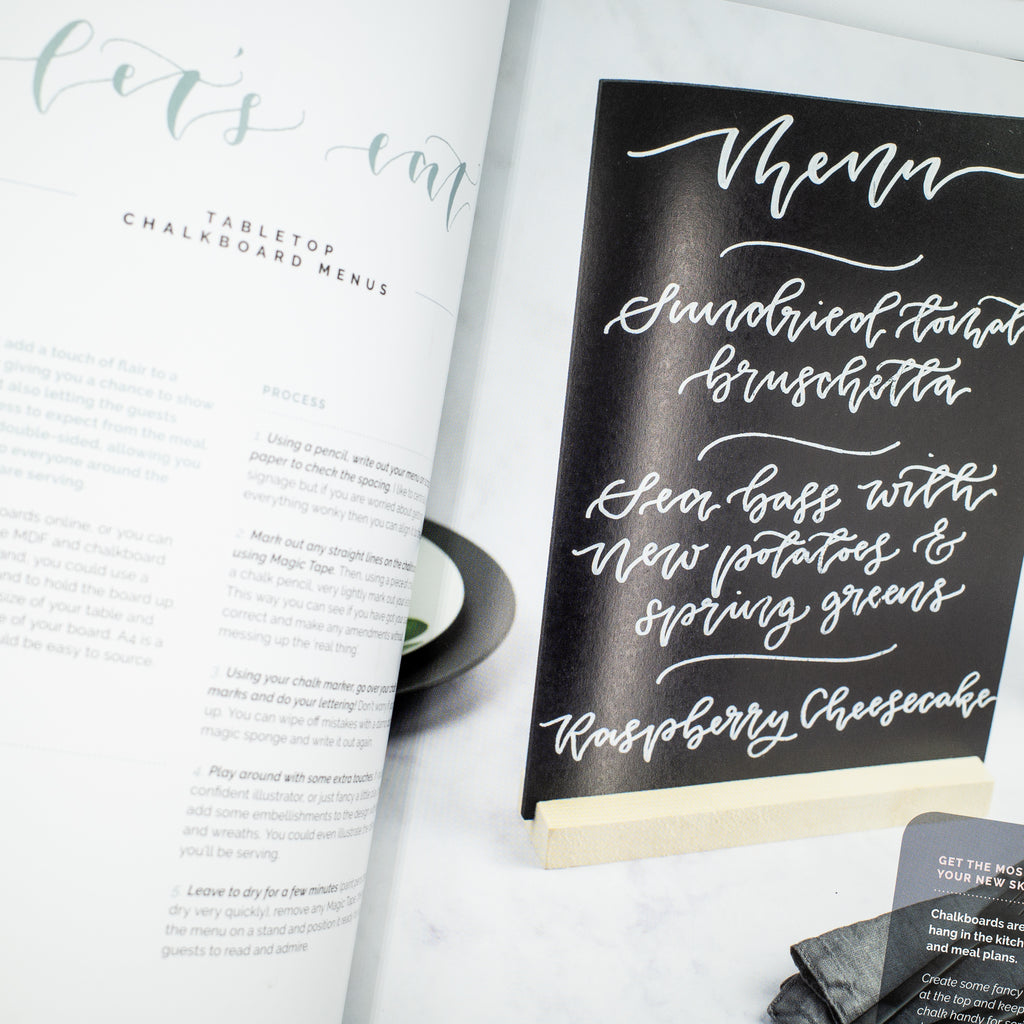 let's eat
TABLETOP
CHALKBOARD MENUS
add a touch of flair to a
giving you a chance to show
also letting the guests
to expect from the meal
double-sided, allowing you
everyone around the
are serving.
online, or you can
MDF and chalkboard
you could use a
to hold the board up
size of your table and
of your board. A4 is a
be easy to source.
PROCESS
1. Using a pencil, write out your menu on
paper to check the spacing. I like to
signage but if you are worried about
everything wonky then you can align it
2. Mark out any straight lines on the
using Magic Tape. Then, using a piece
a chalk pencil, very lightly mark out your
This way you can see if you have got your
correct and make any amendments without
messing up the 'real thing'.
3. Using your chalk marker, go over your
marks and do your lettering! Don't worry
up. You can wipe off mistakes with a
magic sponge and write it out again.
4. Play around with some extra touches.
confident illustrator, or just fancy a little
add some embellishments to the design
and wreaths. You could even illustrate the
you'll be serving.
5. Leave to dry for a few minutes
dry very quickly), remove any Magic Tape
the menu on a stand and position it
guests to read and admire.
Menu
Sundried
bruschetta
Sea bass with
new potatoes &
spring greens
Raspberry Cheesecake
GET THE
YOUR NEW
Chalkboards are
hang in the
and meal plans.
Create some fancy
at the top and keep
chalk handy for